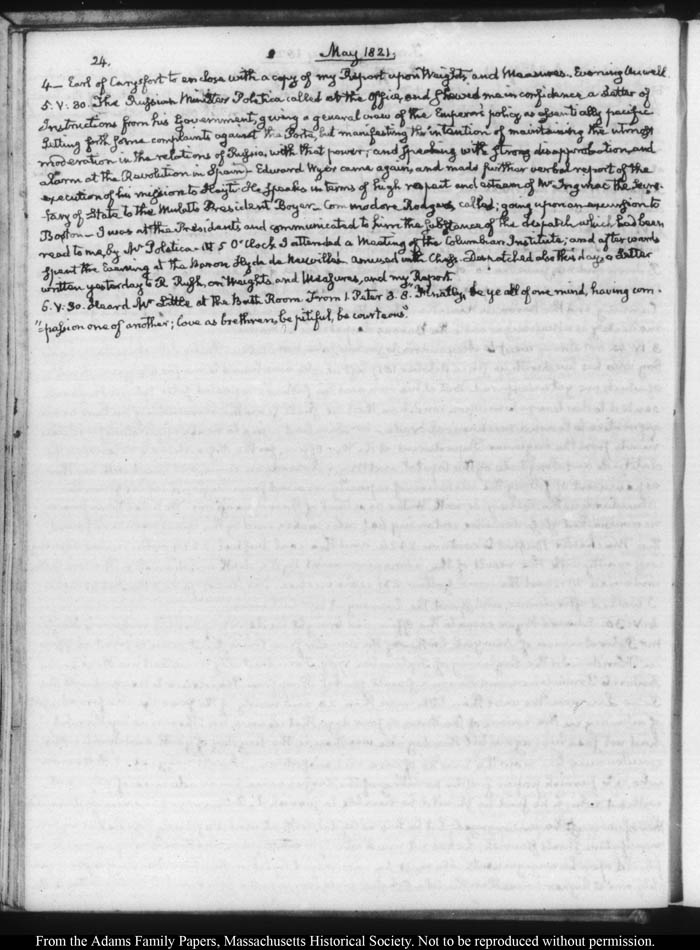 24.
May 1821.
4— Earl of Carysfort to enclose with a copy of my Report upon Weights, and Measures. Evening unwell
5. V: 30. The Russian Minister Poletica called at the Office, and shewed me in confidence a Letter of
Instructions from his Government, giving a general view of the Emperor's policy, as essentially pacific
Setting forth some complaints against the Porte, but manifesting the intention of maintaining the utmost
moderation in the relations of Russia, with that power; and speaking with strong disapprobation, and
alarm at the Revolution in Spain— Edward Wyer came again, and made further verbal report of the
execution of his mission to Hayti. He speaks in terms of high respect and esteem of Mr. Inginac the Secre-
tary of State to the Mulatto President Boyer— Commodore Rodgers, called; going upon an excursion to
Boston— I was at the Presidents and communicated to him the substance of the dispatch which has been
read to me, by Mr Poletica. At 5 O'Clock I attended a Meeting of the Columbian Institute; and afterwards
spent the Evening at the Baron Hyde de Neuville's amused with Chess. Despatched also this day, a Letter
written yesterday to R. Rush, on Weights and Measures, and my Report.
6. V: 30. Heard Mr Little at the Bath Room From 1. Peter 3. 8. "Finally, be ye all of one mind, having com-
"=passion one of another; love as brethren, be pitiful, be courteous."
From the Adams Family Papers, Massachusetts Historical Society. Not to be reproduced without permission.